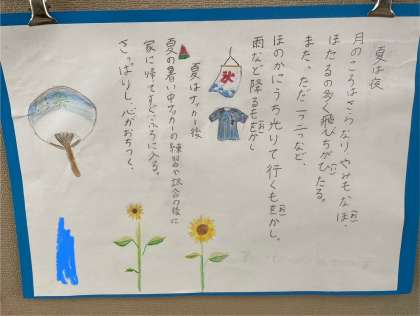 夏は夜
月のころはさらなり やみもなほ、(お)
ほたるの多く飛びちがひたる。(い)
また、ただ一つ二つなど、
ほのかにうち光りて行くもをかし。(お)
雨など降るもをかし(お)
氷
夏はサッカー後
夏の暑い中サッカーの練習や試合の後に
家に帰てすぐふろに入る。
さっぱりし、心がおちつく、